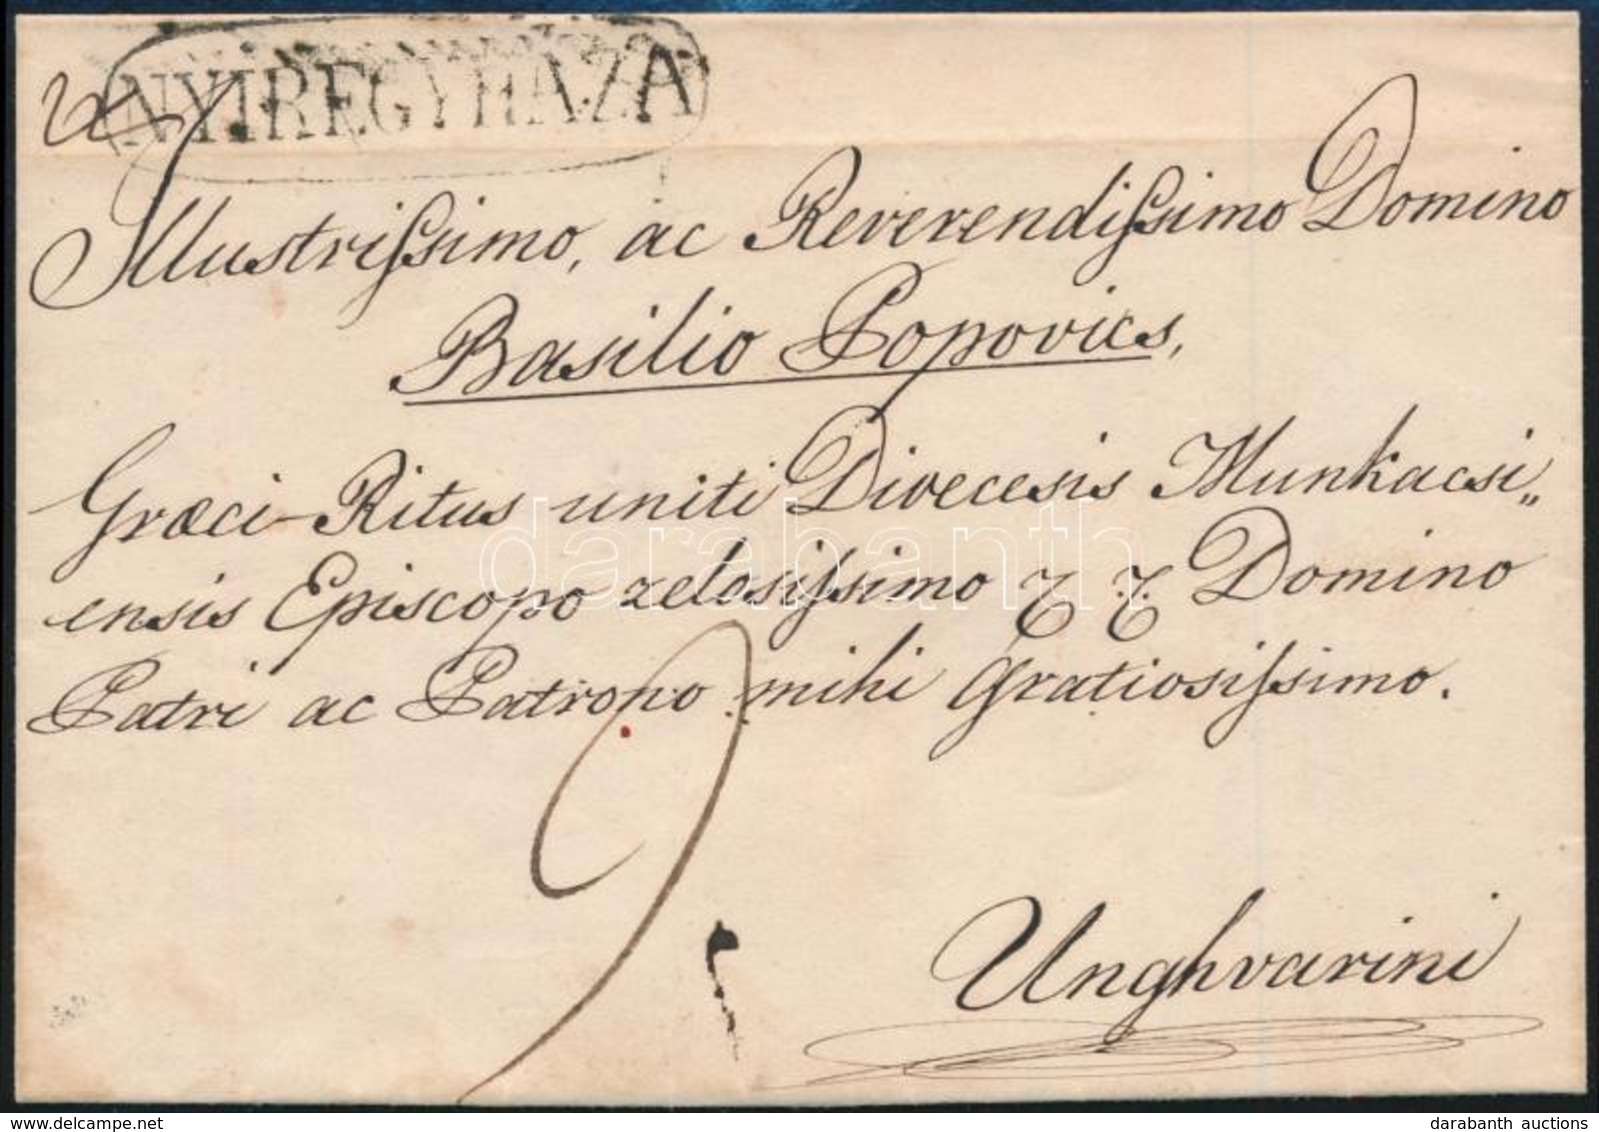 NYIREGYHÁZA
Illustrissimo, ac Reverendissimo Domino
Basilio Popovics,
Græci Ritus uniti Dioecesis Munkacsi„
ensis Episcopo zelosissimo T. T. Domino
Patri ac Patrono mihi Gratiosissimo.
9
Unghvarini
darabanth
darabanth auctions
delcampe.net